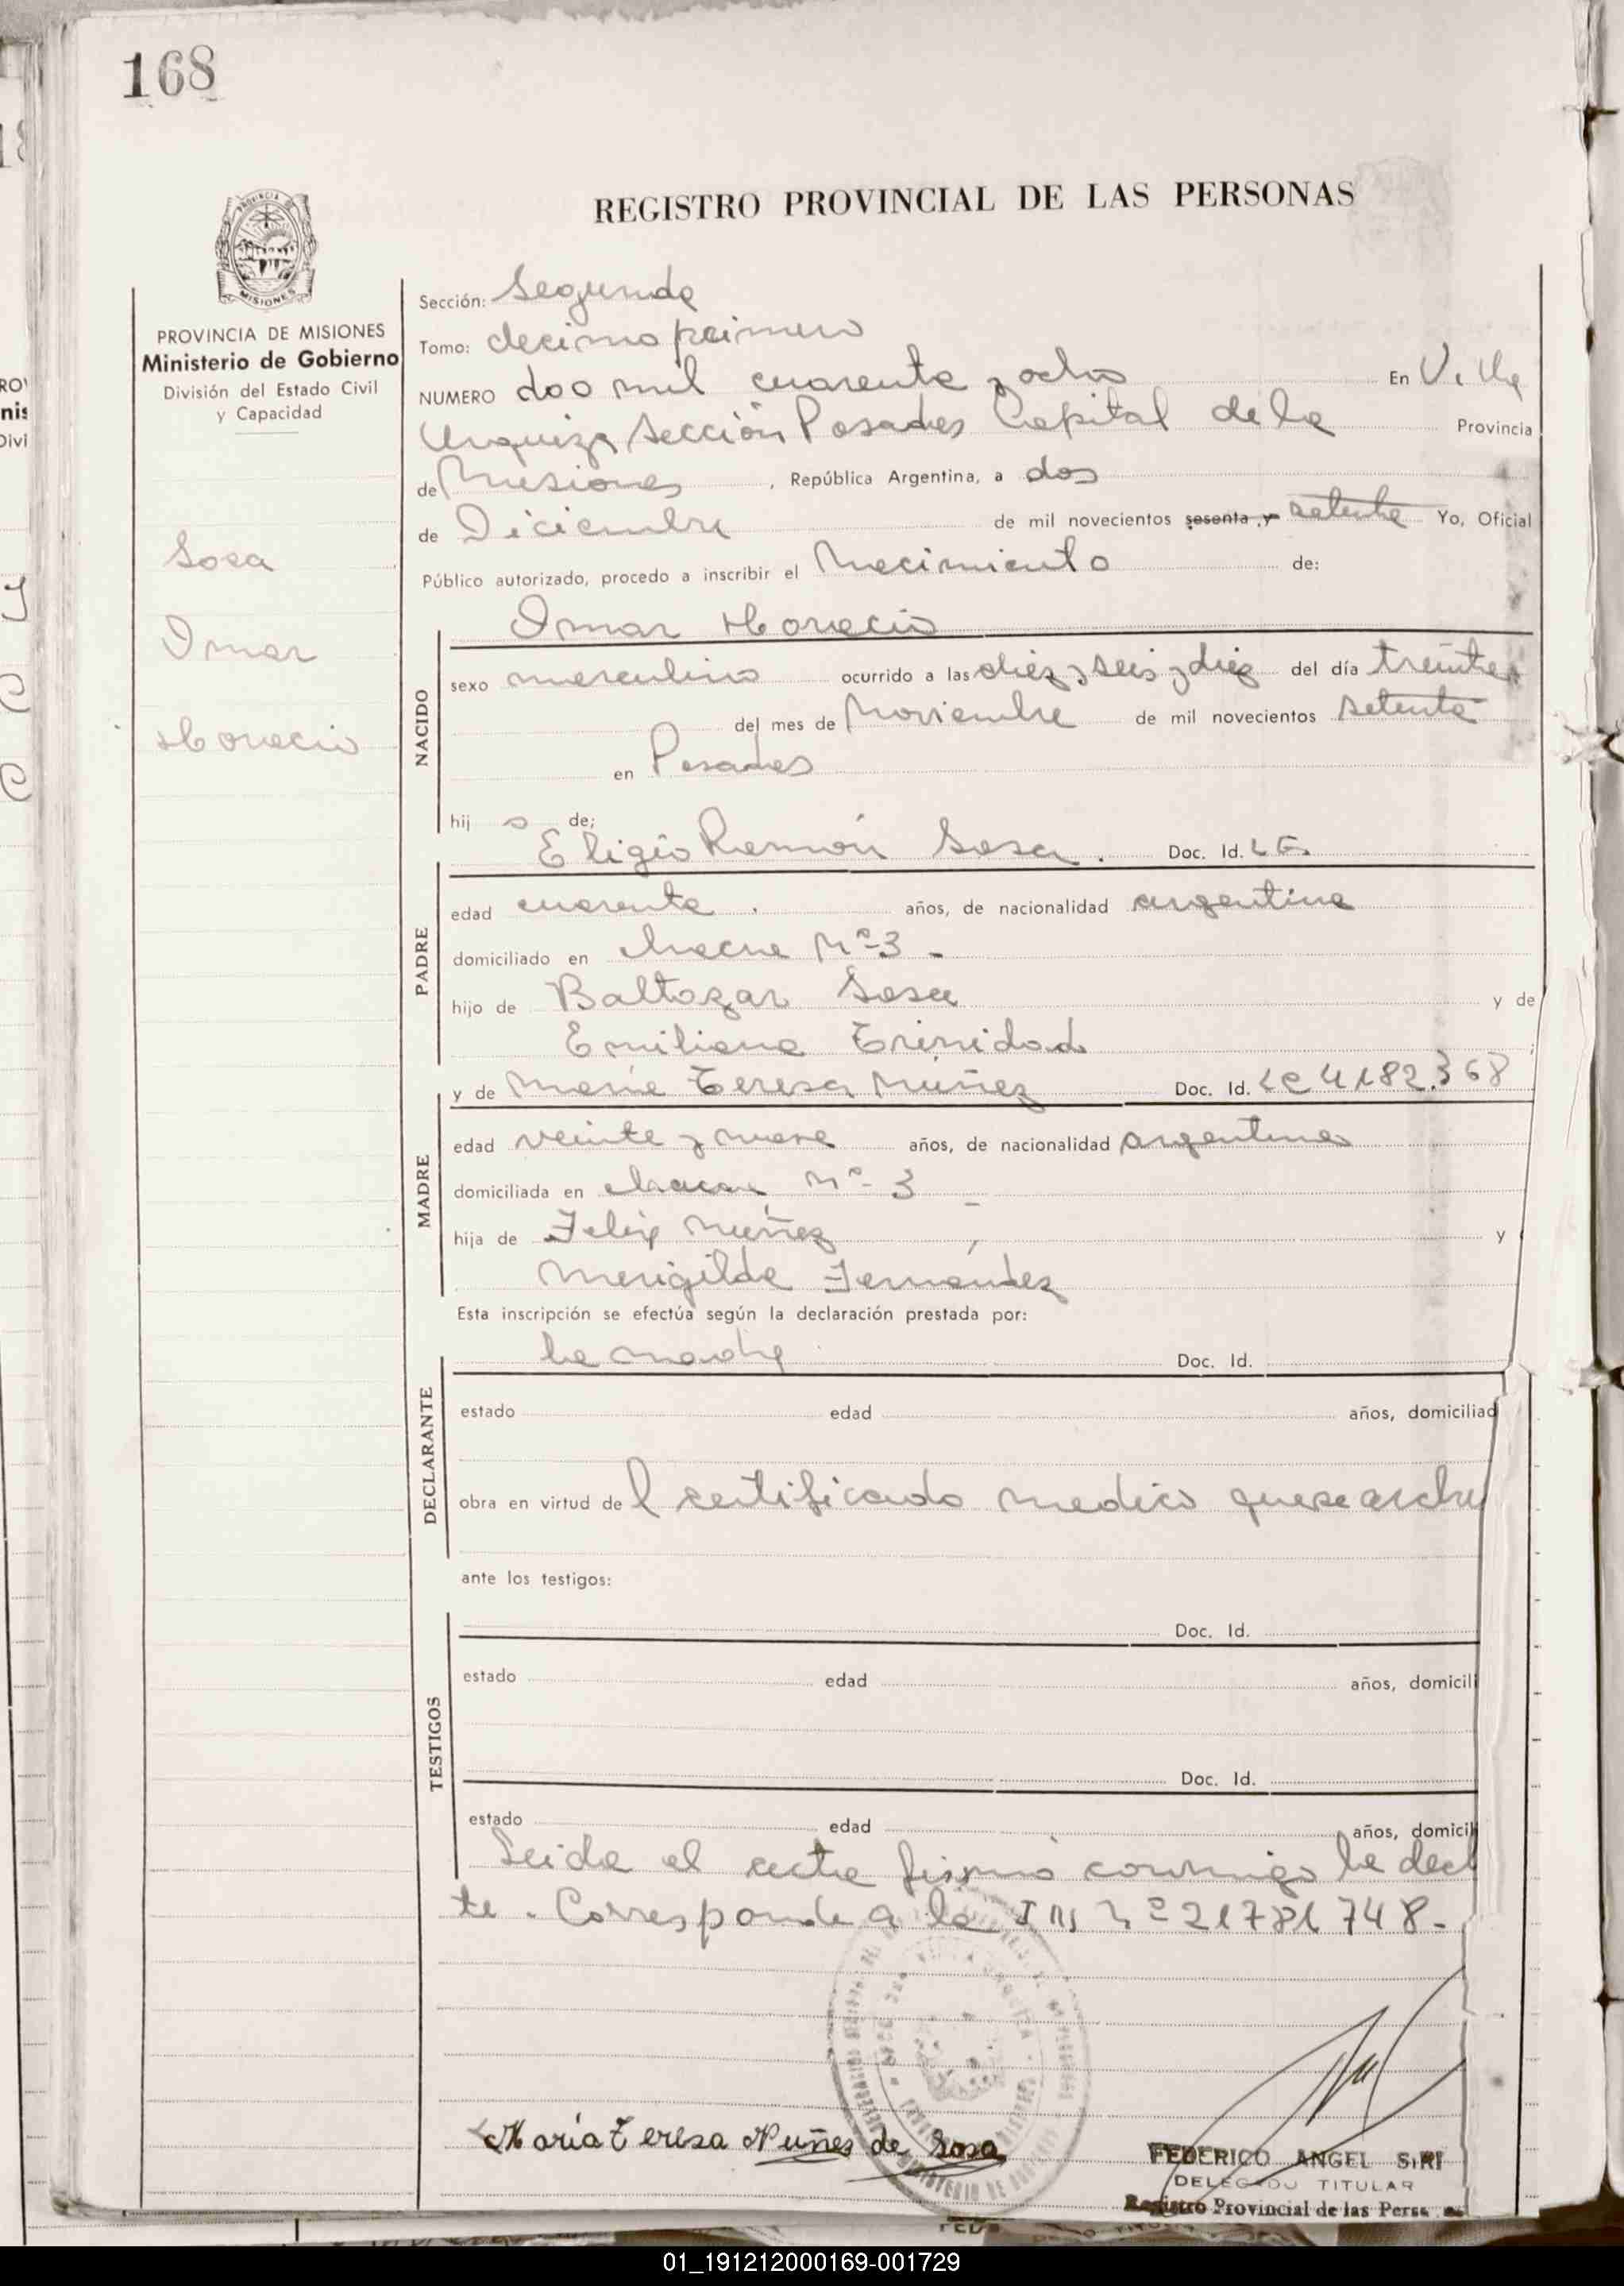 168
REGISTRO PROVINCIAL DE LAS PERSONAS
PROVINCIA DE MISIONES
Ministerio de Gobierno
División del Estado Civil
y Capacidad
Sosa
Omar
Horacio
Sección: Segunda
Tomo: decimo primero
NUMERO dos mil cuarenta y ocho En Villa
Urquiza Sección Posadas Capital de la Provincia
de Misiones, República Argentina, a dos
de Diciembre de mil novecientos sesenta y setenta Yo, Oficial
Público autorizado, procedo a inscribir el Nacimiento de:
Omar Horacio
NACIDO
sexo masculino ocurrido a las diez y seis y diez del día treinta
del mes de Noviembre de mil novecientos setenta
en Posadas
hij o de;
Eligio Ramón Sosa. Doc. Id. LE.
PADRE
edad cuarenta. años, de nacionalidad argentina
domiciliado en chacra Nº-3-
hijo de Baltazar Sosa y de
Emiliana Trinidad
y de María Teresa Nuñez Doc. Id. LC 4182.368
MADRE
edad veinte y nueve años, de nacionalidad argentina
domiciliada en chacra Nº-3-
hija de Felix Nuñez y
Merigilda Fernández
Esta inscripción se efectúa según la declaración prestada por:
la madre Doc. Id.
DECLARANTE
estado edad años, domiciliad
obra en virtud de l certificado medico que se archi
ante los testigos:
TESTIGOS
Doc. Id.
estado edad años, domicili
Doc. Id.
estado edad años, domicil
Leida el acta firmó conmigo la decl
te. Corresponde a la IM Nº 21781748-
María Teresa Nuñes de Sosa
FEDERICO ANGEL SIRI
DELEGADO TITULAR
Registro Provincial de las Perso
01_191212000169-001729